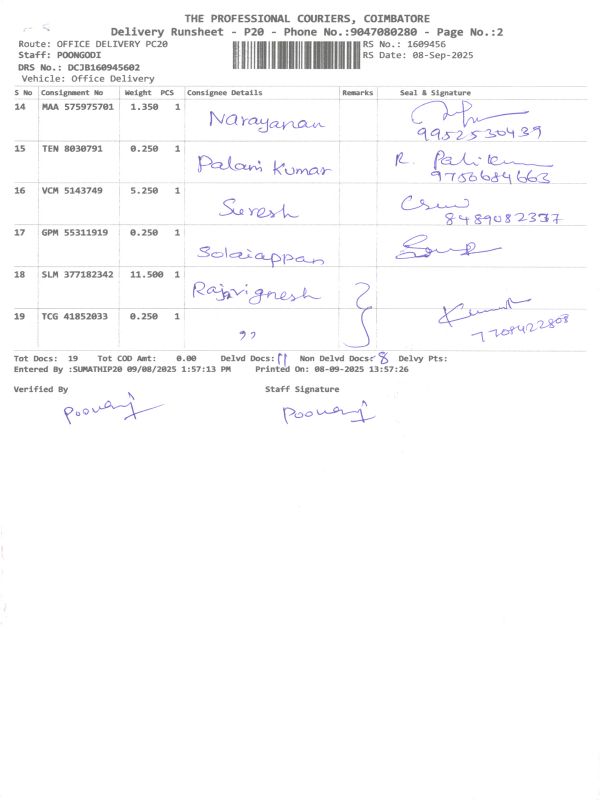 THE PROFESSIONAL COURIERS, COIMBATORE
Delivery Runsheet - P20 - Phone No.:9047080280 - Page No.:2
Route: OFFICE DELIVERY PC20 RS No.: 1609456
Staff: POONGODI RS Date: 08-Sep-2025
DRS No.: DCJB160945602
Vehicle: Office Delivery
S No Consignment No Weight PCS Consignee Details Remarks Seal & Signature
14 MAA 575975701 1.350 1 Narayanan
9952530439
15 TEN 8030791 0.250 1 Palani Kumar R.
9750684663
16 VCM 5143749 5.250 1 Suresh
8489082337
17 GPM 55311919 0.250 1 Solaiappan
18 SLM 377182342 11.500 1 Rajavignesh
19 TCG 41852033 0.250 1 ,, 7708422808
Tot Docs: 19 Tot COD Amt: 0.00 Delvd Docs: 11 Non Delvd Docs: 8 Delvy Pts:
Entered By :SUMATHIP20 09/08/2025 1:57:13 PM Printed On: 08-09-2025 13:57:26
Verified By Staff Signature